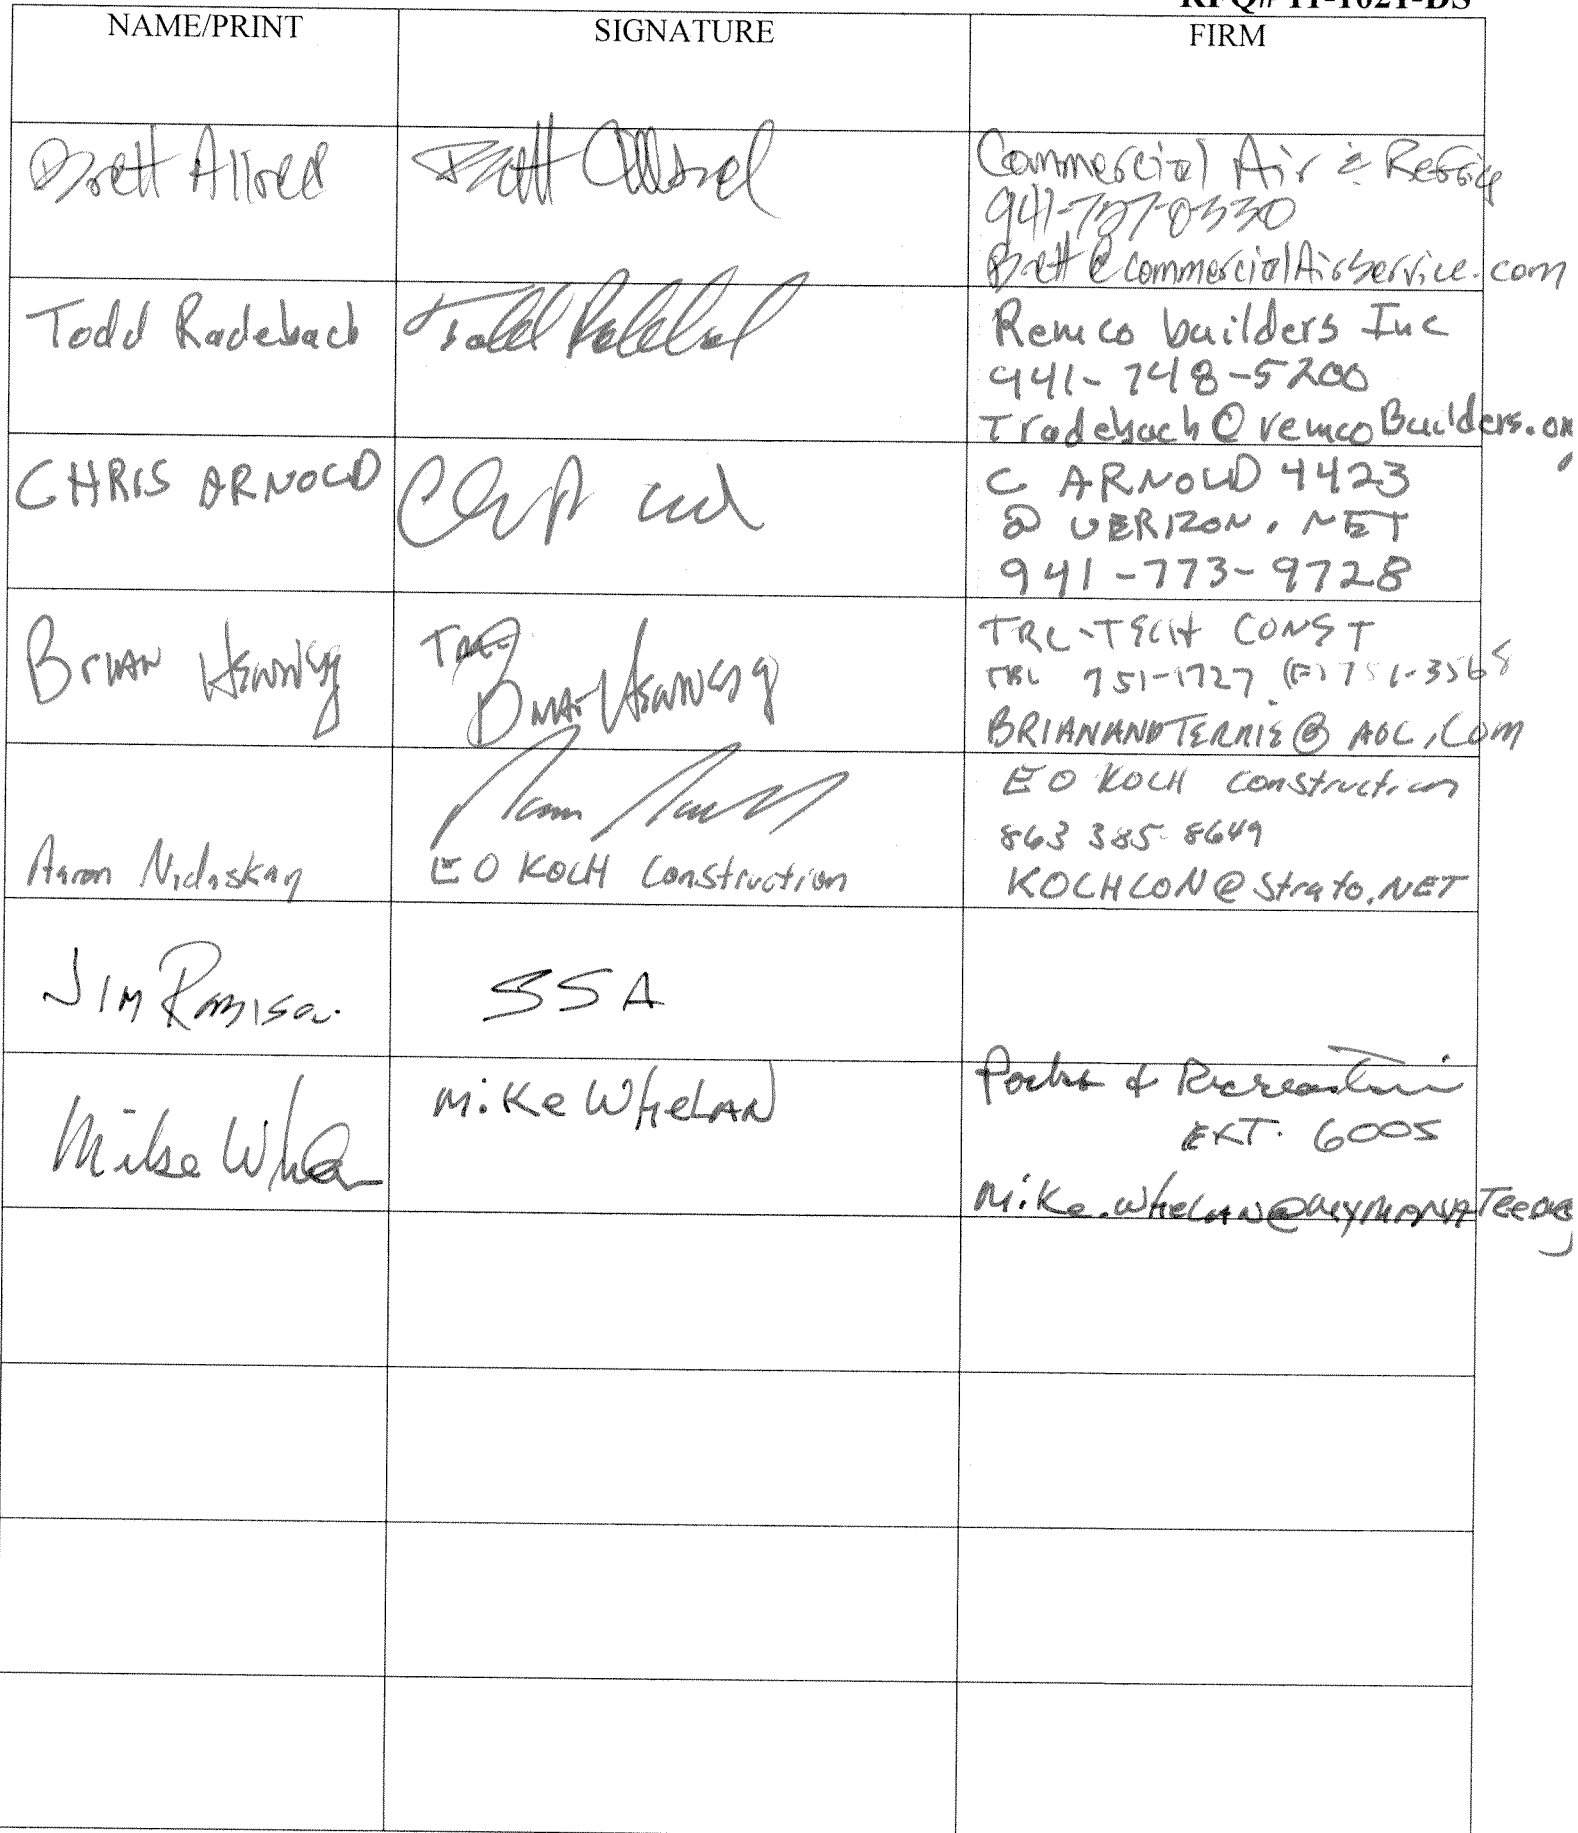 NAME/PRINT
SIGNATURE
FIRM
Brett Allred
Brett Allred
Commercial Air & Refrig
941-727-0330
Brett@commercialAirService.com
Todd Radebach
Todd Radebach
Remco builders Inc
941-748-5200
Tradebach@remcoBuilders.
CHRIS ARNOLD
C ARNOLD 4423
@ VERIZON. NET
941-773-9728
BRIAN
BRIAN
TRI-TECH CONST
751-1727 (F) 751-3568
BRIANANDTERRIE@AOL.COM
Aaron
EO KOCH Construction
EO KOCH Construction
863 385-8649
KOCHCON@Strato.NET
JIM
SSA
Mike Whelan
Mike WHELAN
Parks & Recreation
EXT. 6005